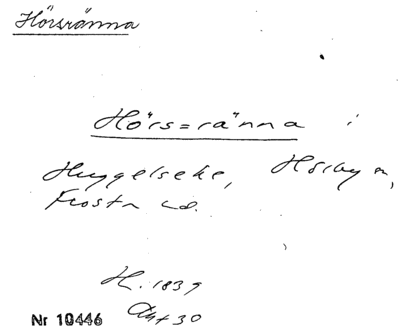 Hörsränna
Hörs=ränna i
Huggelseke, Hörby sn,
Frosta hd.
H. 1839
Akt 30
Nr 10446